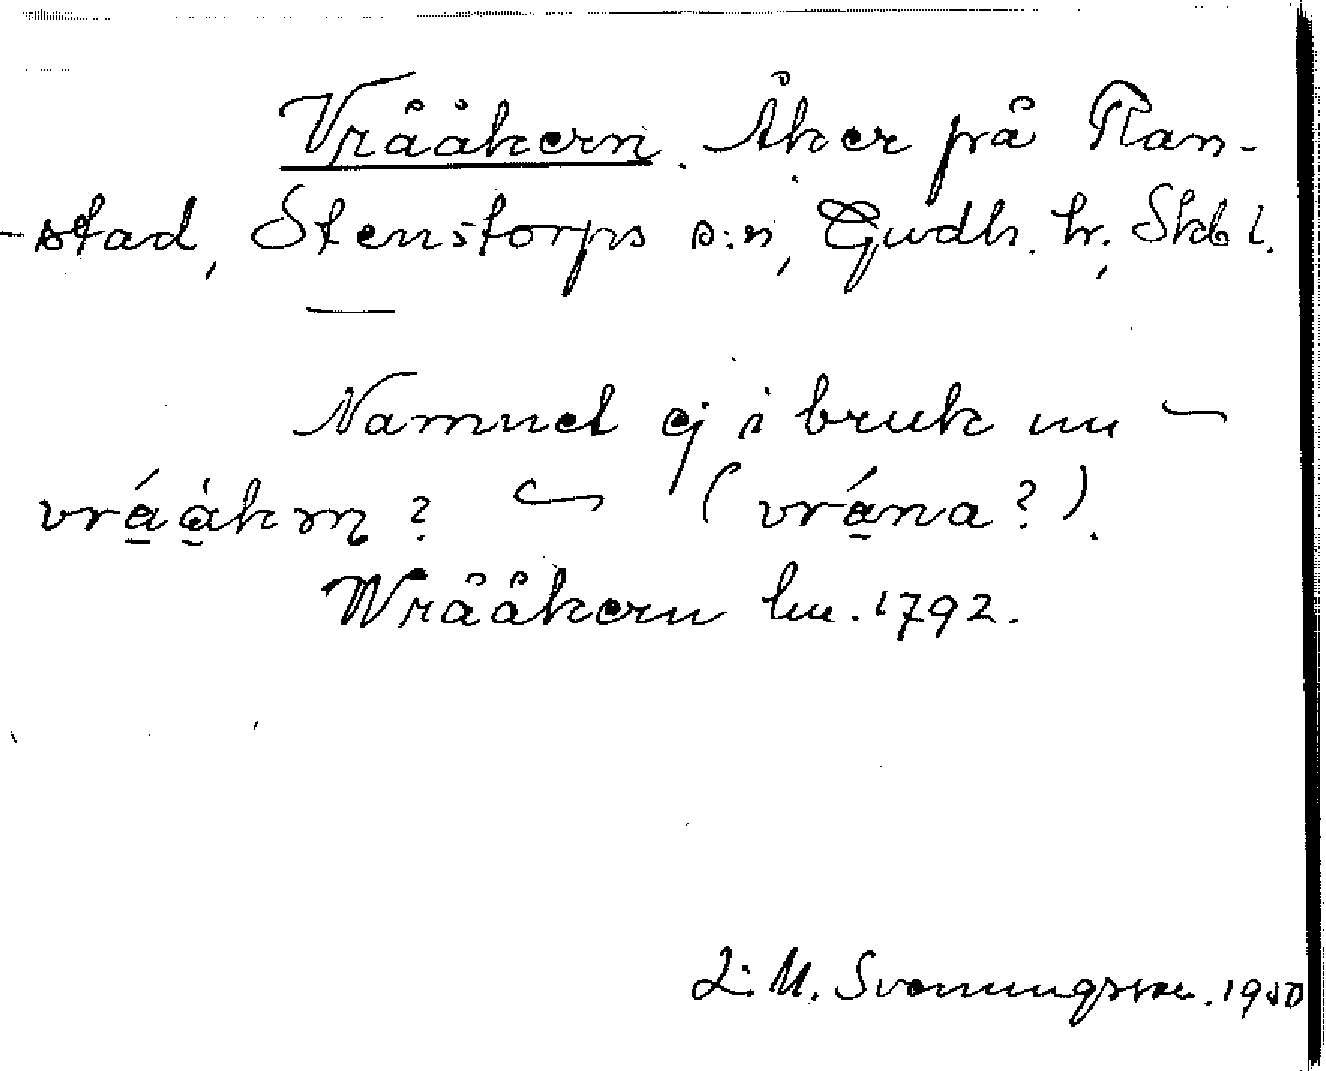 Vrååkern. Åker på Ran-
-stad, Stenstorps s:n, Gudh. hr, Skbl.
Namnet ej i bruk nu –
vrá̱á̱kn̥? – (vrá̱na?).
Wrååkern hu. 1792.
L. M. Svenungsson. 1950